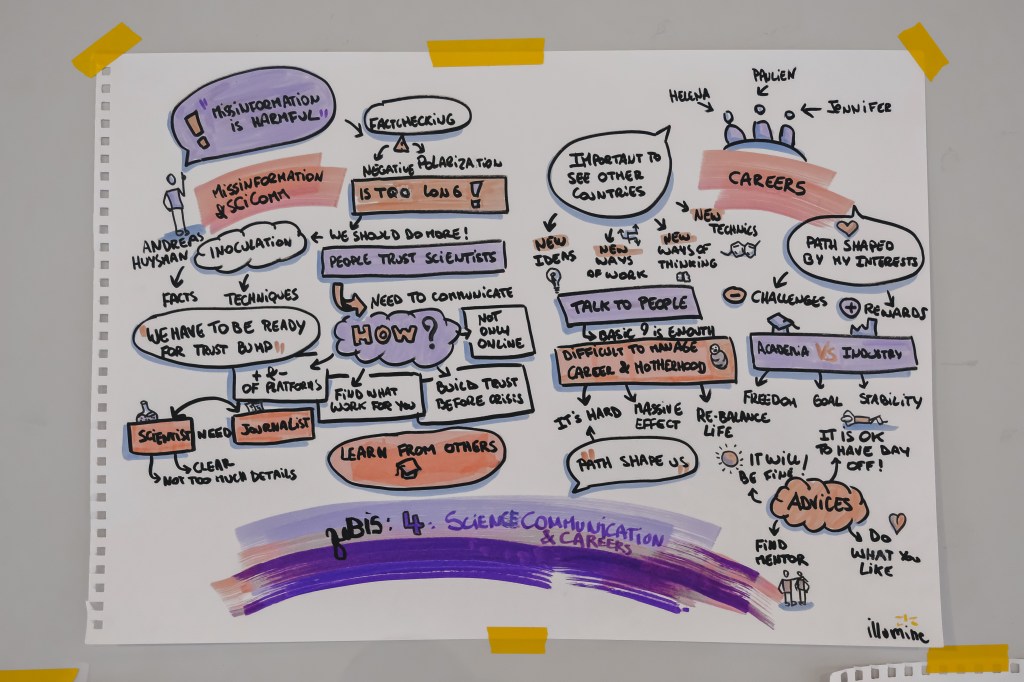 "MISSINFORMATION
IS HARMFUL"
MISSINFORMATION
& SCICOMM
ANDREAS
HUYSMAN
INOCULATION
FACTS
TECHNIQUES
"WE HAVE TO BE READY
FOR TRUST BUMP"
FACTCHECKING
NEGATIVE
POLARIZATION
IS TOO LONG!
WE SHOULD DO MORE!
PEOPLE TRUST SCIENTISTS
NEED TO COMMUNICATE
HOW?
NOT
ONLY
ONLINE
+ & -
OF PLATFORMS
FIND WHAT
WORK FOR YOU
BUILD TRUST
BEFORE CRISIS
SCIENTIST
NEED
JOURNALIST
CLEAR
NOT TOO MUCH DETAILS
LEARN FROM OTHERS
HELENA
PAULIEN
JENNIFER
CAREERS
IMPORTANT TO
SEE OTHER
COUNTRIES
NEW
IDEAS
NEW
WAYS
OF WORK
NEW
WAYS OF
THINKING
NEW
TECHNICS
TALK TO PEOPLE
BASIC ? IS ENOUGH
DIFFICULT TO MANAGE
CAREER & MOTHERHOOD
IT'S HARD
MASSIVE
EFFECT
RE-BALANCE
LIFE
"PATH SHAPE US"
PATH SHAPED
BY MY INTERESTS
- CHALLENGES
+ REWARDS
ACADEMIA VS INDUSTRY
FREEDOM
GOAL
STABILITY
IT IS OK
TO HAVE DAY
OFF!
IT WILL
BE FINE!
ADVICES
FIND
MENTOR
DO
WHAT YOU
LIKE
: 4. SCIENCE COMMUNICATION
& CAREERS
illumine